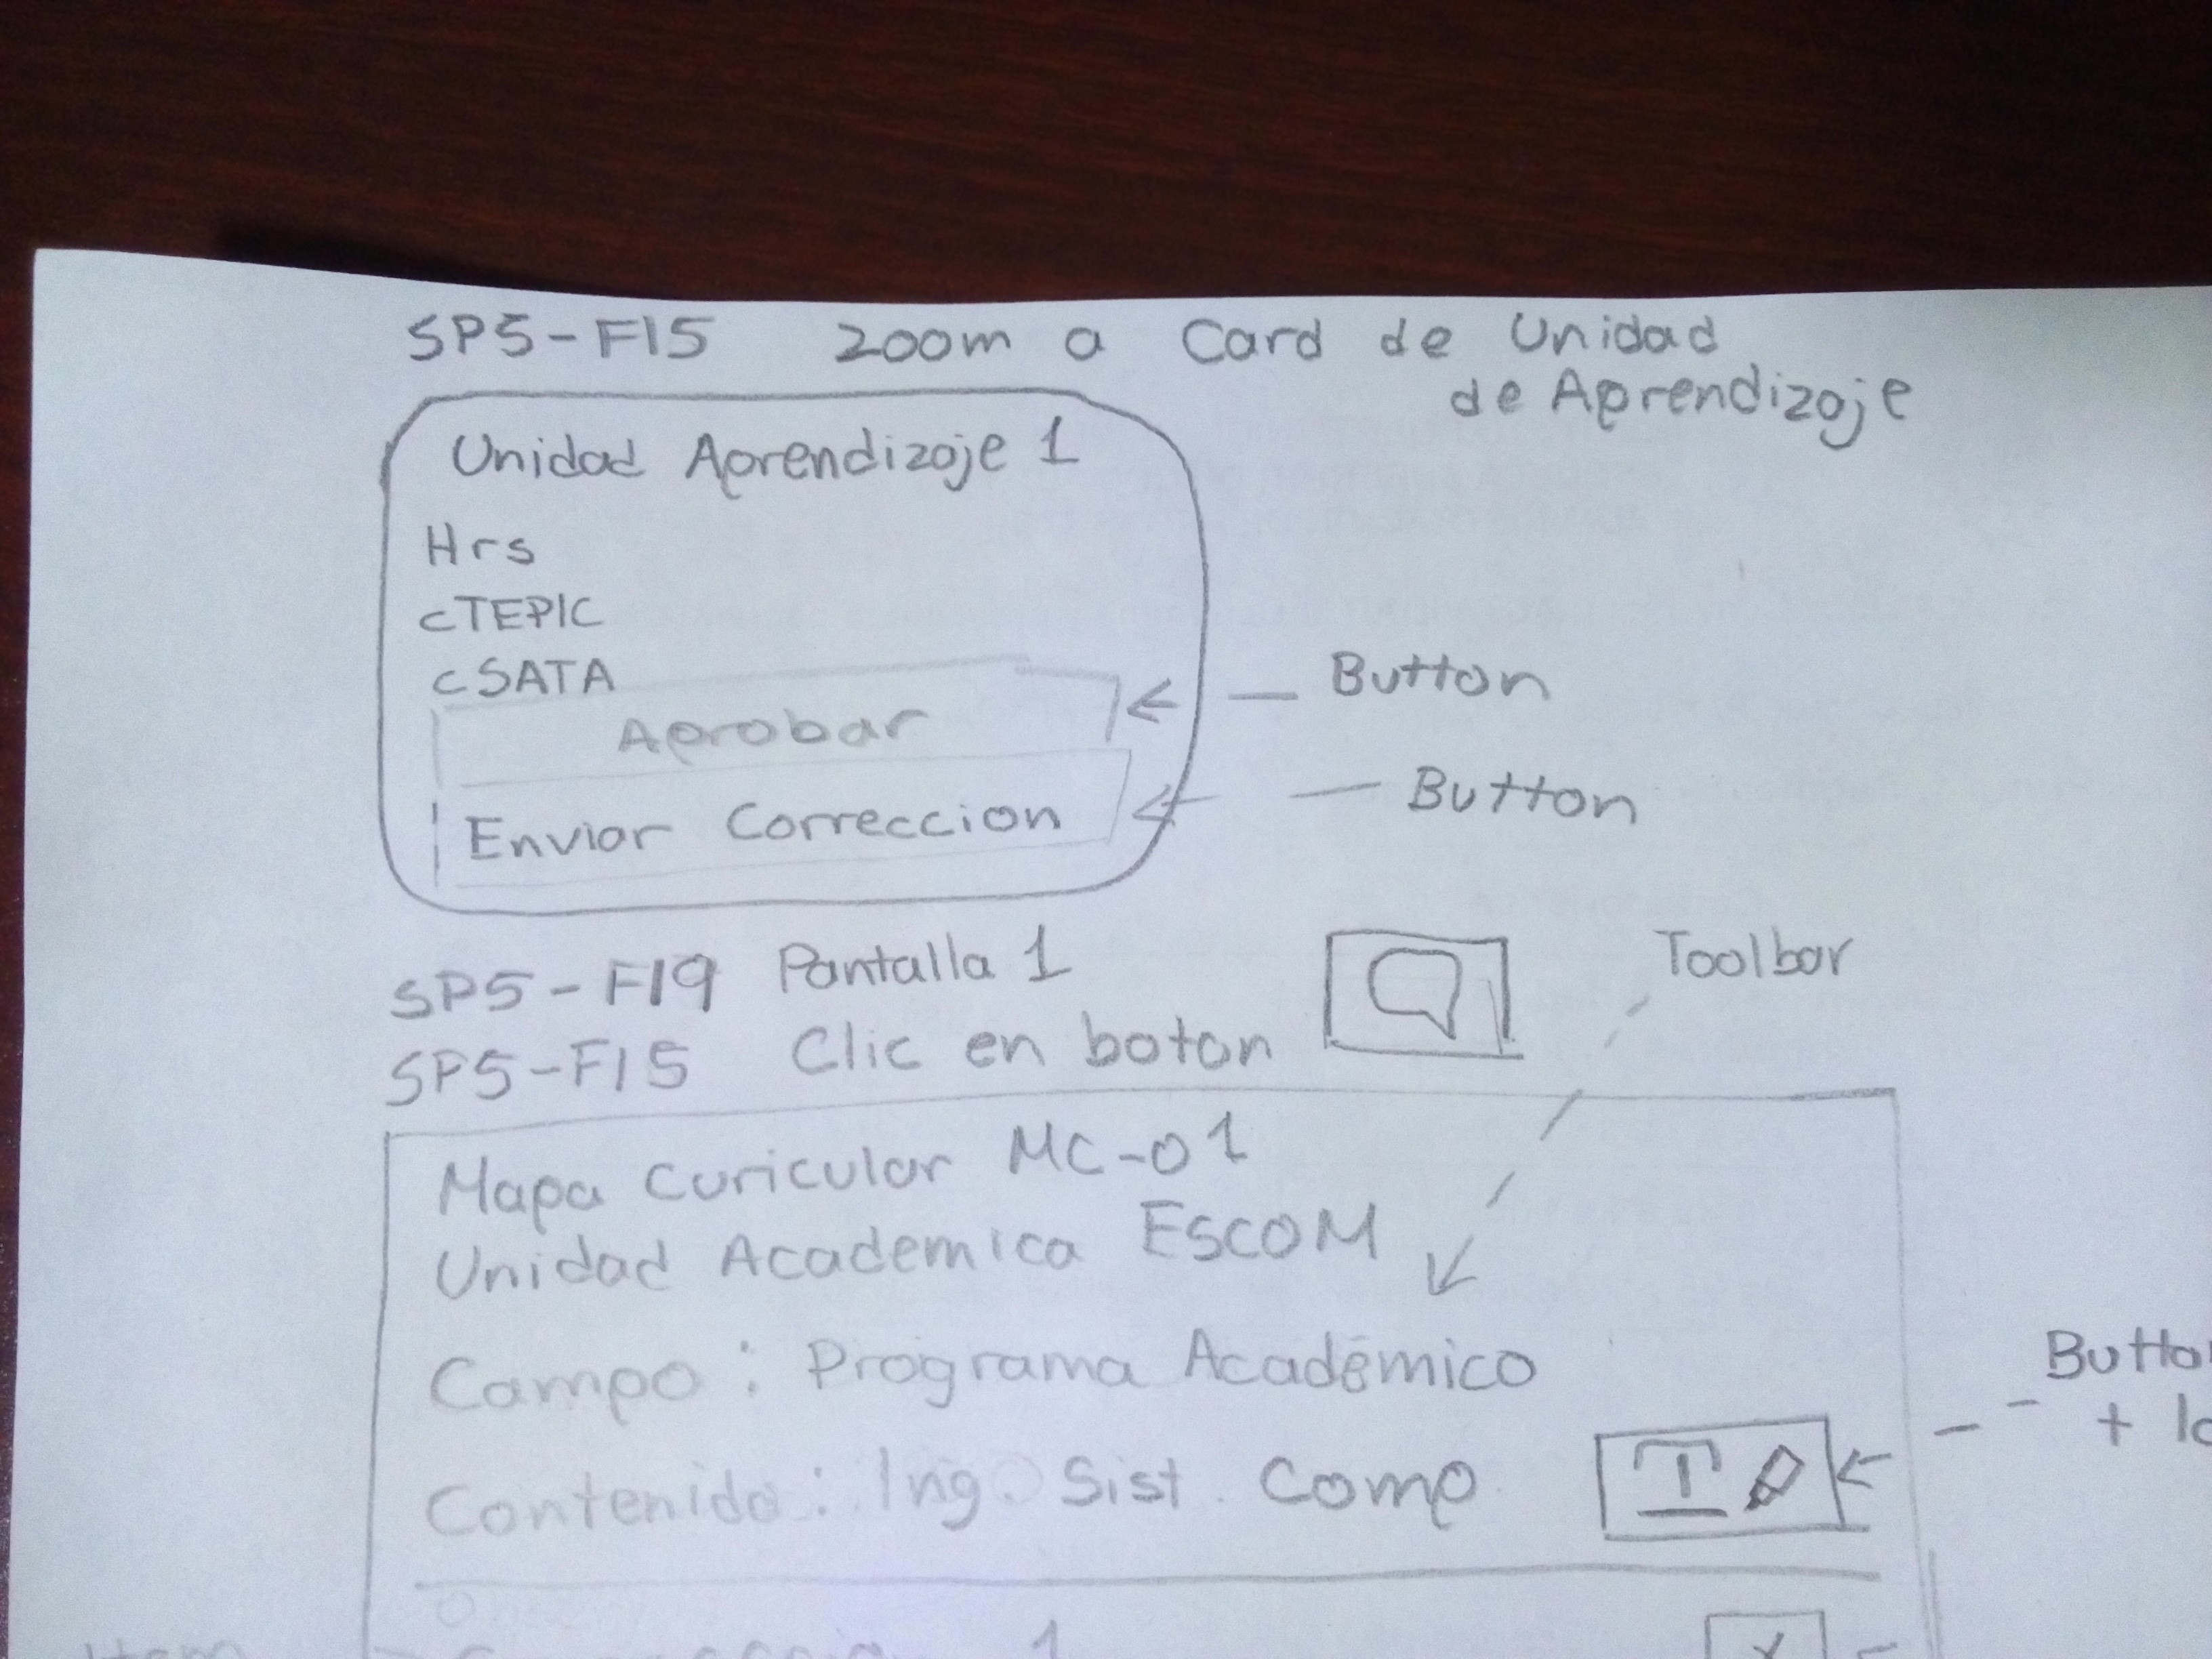 SP5-F15 Zoom a Card de Unidad
de Aprendizaje
Unidad Aprendizaje 1
Hrs
cTEPIC
cSATA
Button
Aprobar
Button
Enviar Correccion
SP5-F19 Pantalla 1
Toolbar
SP5-F15 Clic en boton
Mapa Curicular MC-01
Unidad Academica ESCOM
Campo: Programa Académico
Contenido: Ing. Sist. Comp
T
+
1